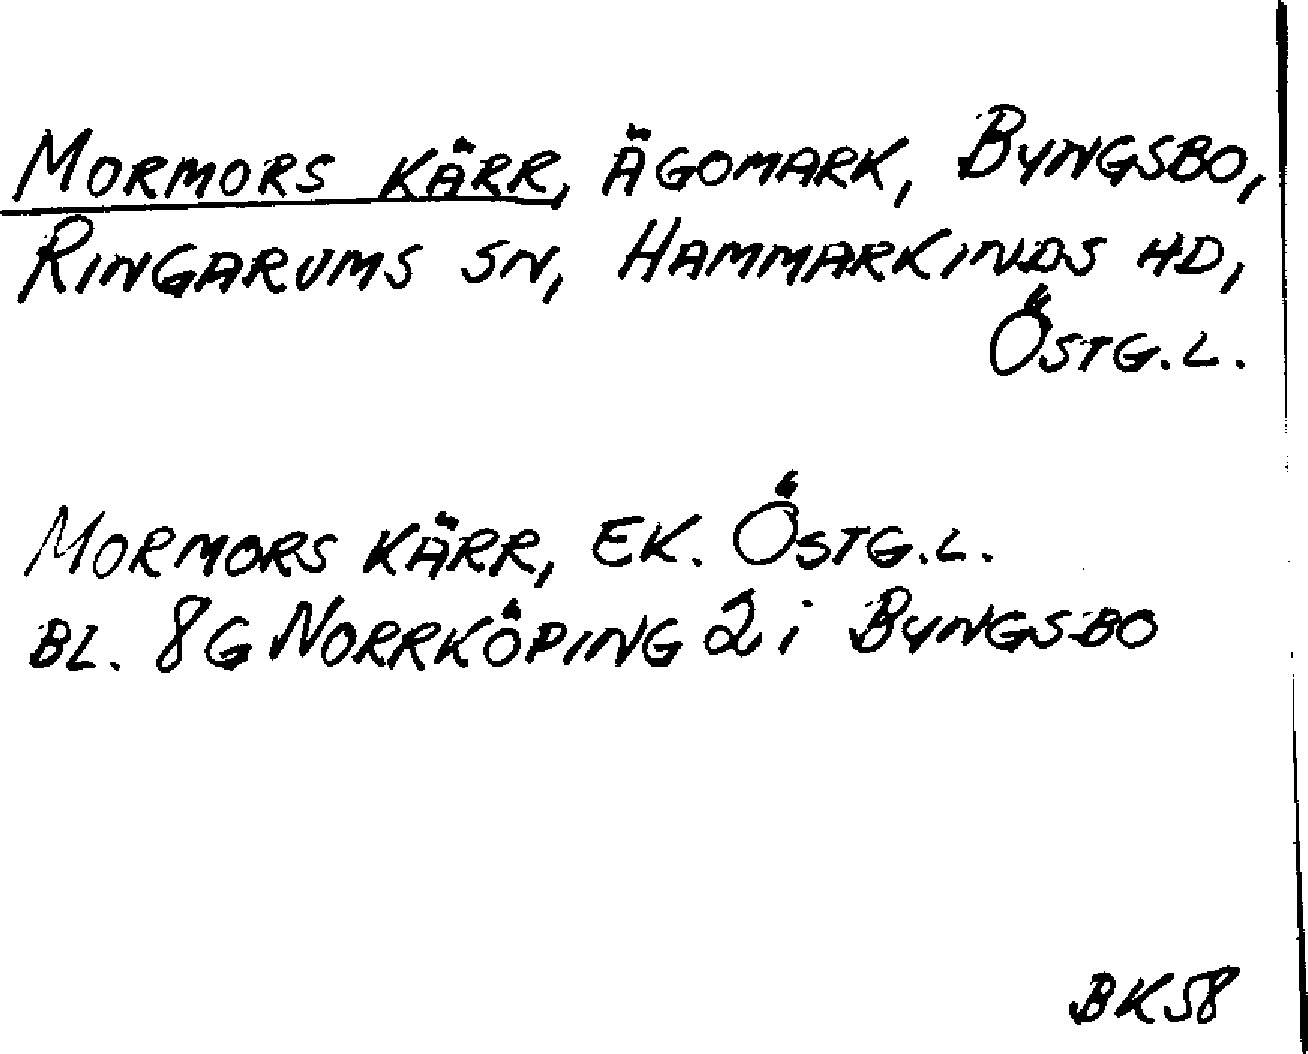 MORMORS KÄRR, ÄGOMARK, BYNGSBO,
RINGARUMS SN, HAMMARKINDS HD,
ÖSTG.L.
MORMORS KÄRR, EK. ÖSTG.L.
BL. 8G NORRKÖPING 2i BYNGSBO
BK58